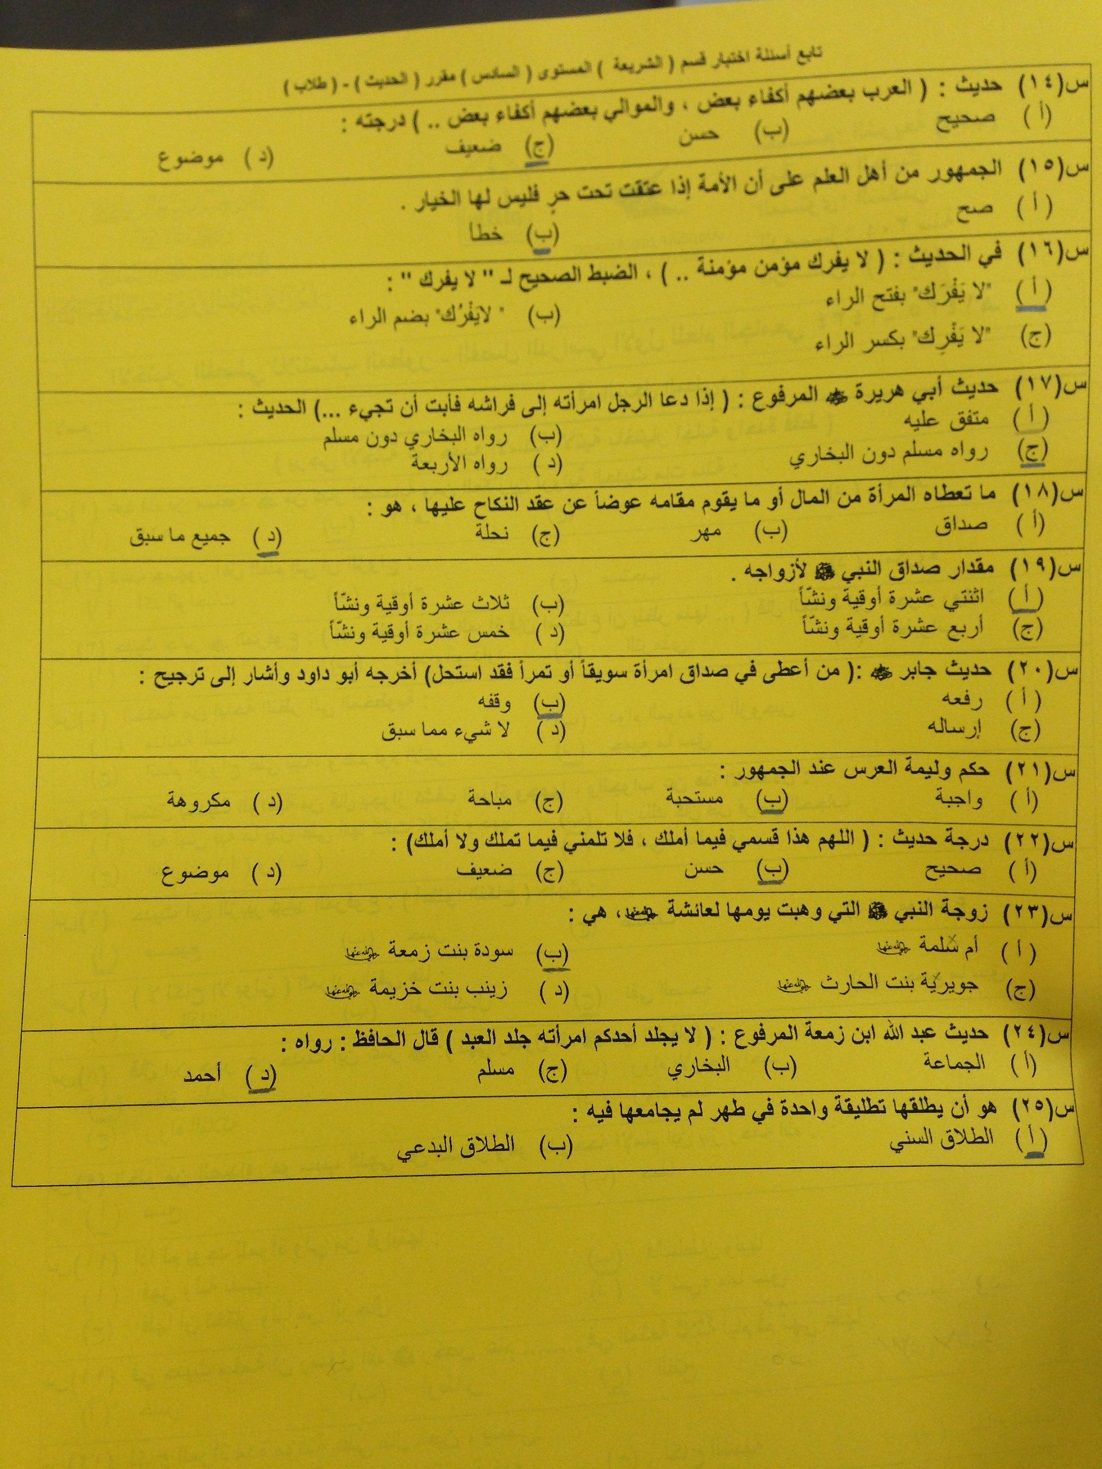 تابع أسئلة اختبار قسم ( الشريعة ) المستوى ( السادس ) مقرر ( الحديث ) - ( طلاب )
س(١٤) حديث : ( العرب بعضهم أكفاء بعض ، والموالي بعضهم أكفاء بعض .. ) درجته :
(أ ) صحيح (ب) حسن (ج) ضعيف (د ) موضوع
س(١٥) الجمهور من أهل العلم على أن الأمة إذا عتقت تحت حرٍ فليس لها الخيار .
(أ ) صح (ب) خطأ
س(١٦) في الحديث : ( لا يفرك مؤمن مؤمنة .. ) ، الضبط الصحيح لـ " لا يفرك " :
(أ ) "لا يَفْرَك" بفتح الراء (ب) " لايَفْرُك" بضم الراء
(ج) "لا يَفْرِك" بكسر الراء
س(١٧) حديث أبي هريرة ﷺ المرفوع : ( إذا دعا الرجل امرأته إلى فراشه فأبت أن تجيء ...) الحديث :
(أ ) متفق عليه (ب) رواه البخاري دون مسلم
(ج) رواه مسلم دون البخاري (د ) رواه الأربعة
س(١٨) ما تعطاه المرأة من المال أو ما يقوم مقامه عوضاً عن عقد النكاح عليها ، هو :
(أ ) صداق (ب) مهر (ج) نحلة (د ) جميع ما سبق
س(١٩) مقدار صداق النبي ﷺ لأزواجه .
(أ ) اثنتي عشرة أوقية ونشّاً (ب) ثلاث عشرة أوقية ونشّاً
(ج) أربع عشرة أوقية ونشّاً (د ) خمس عشرة أوقية ونشّاً
س(٢٠) حديث جابر :( من أعطى في صداق امرأة سويقاً أو تمراً فقد استحل) أخرجه أبو داود وأشار إلى ترجيح :
(أ ) رفعه (ب) وقفه
(ج) إرساله (د ) لا شيء مما سبق
س(٢١) حكم وليمة العرس عند الجمهور :
(أ ) واجبة (ب) مستحبة (ج) مباحة (د ) مكروهة
س(٢٢) درجة حديث : ( اللهم هذا قسمي فيما أملك ، فلا تلمني فيما تملك ولا أملك) :
(أ ) صحيح (ب) حسن (ج) ضعيف (د ) موضوع
س(٢٣) زوجة النبي ﷺ التي وهبت يومها لعائشة رضي الله عنها ، هي :
(أ ) أم سلمة رضي الله عنها (ب) سودة بنت زمعة رضي الله عنها
(ج) جويرية بنت الحارث رضي الله عنها (د ) زينب بنت خزيمة رضي الله عنها
س(٢٤) حديث عبد الله ابن زمعة المرفوع : ( لا يجلد أحدكم امرأته جلد العبد ) قال الحافظ : رواه :
(أ ) الجماعة (ب) البخاري (ج) مسلم (د ) أحمد
س(٢٥) هو أن يطلقها تطليقة واحدة في طهر لم يجامعها فيه :
(أ ) الطلاق السني (ب) الطلاق البدعي